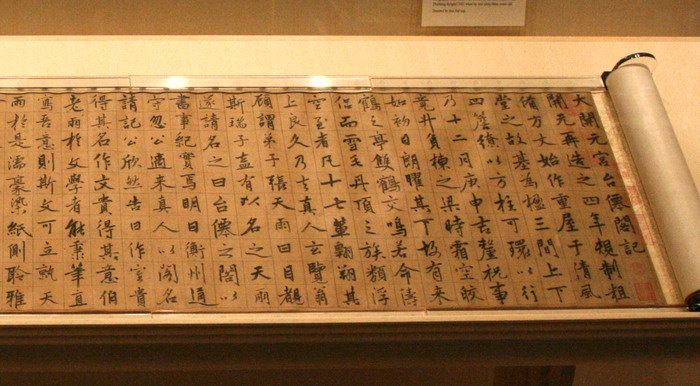 大開元宮台僊閣記
開元再造之四年規制粗
備方大始作重屋于清風
堂之故基為楹三間上下
四簷繚以方柱可環以行
乃十二月庚申吉釐祝事
竟升負棟之梁時霜空皎
如初日朗曜其下有來
鶴之亭雙鶴交鳴若命儔
侶而雪毛丹頂之族類浮
空至者凡十七輩翱翔其
上良久乃去真人玄覽翁
顧謂弟子張天雨曰目覩
斯瑞子盍有以名之天雨
遂請名之曰台僊之閣以
書事紀實焉明日衡州通
守忽公適來真人以閣名
請記公欣然告曰作室貴
得其名作文貴得其意伯
老雨於文學者能秉筆直
寫吾意則斯文可立就天
雨於是濡豪染紙側聆雅